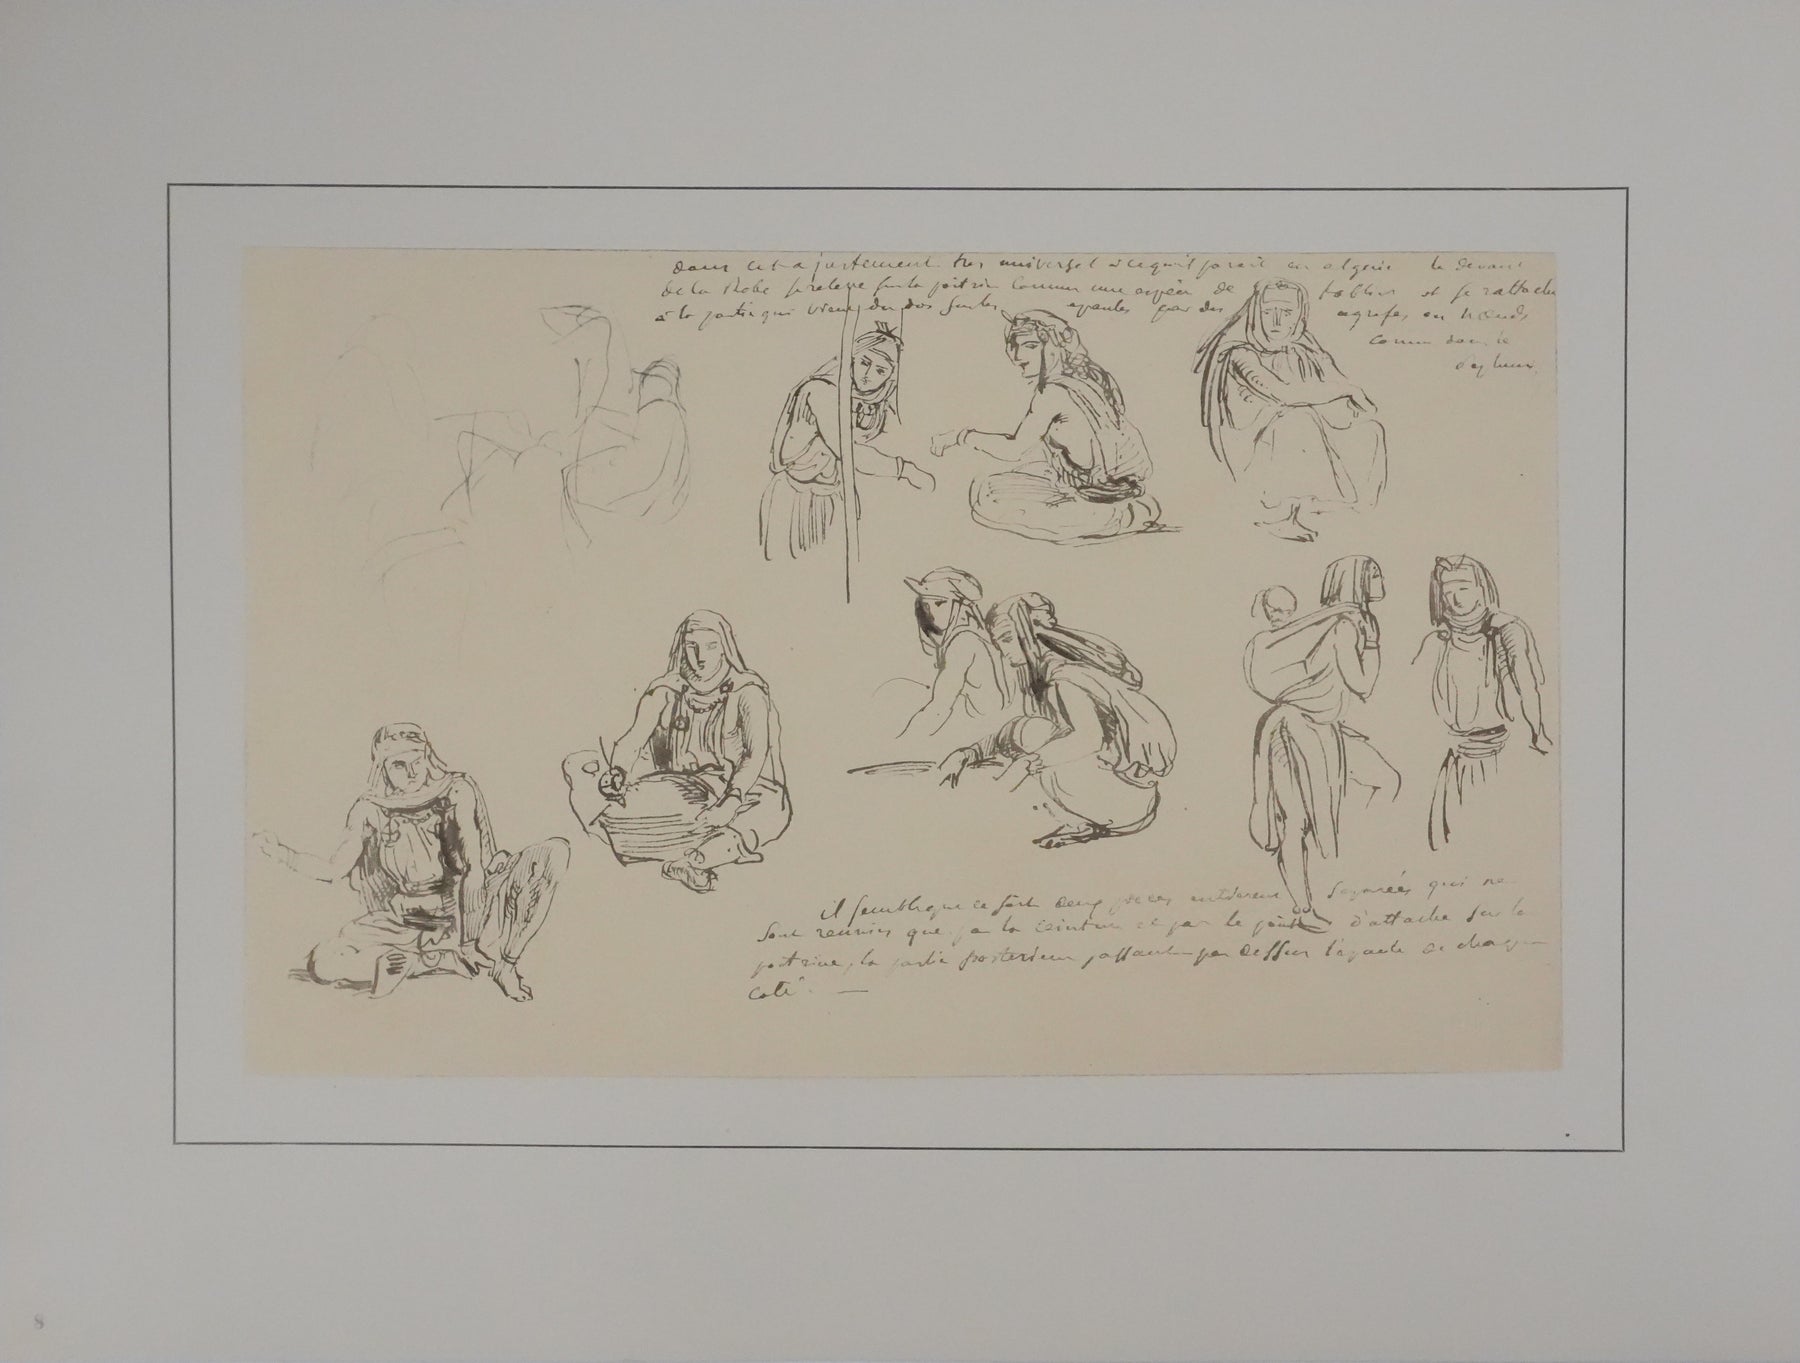 dans cet ajustement très universel à ce qu'il parait en algerie le devant
de la Robe se releve sur la poitrine comme une espèce de tablier et se rattache
à la partie qui vient du dos sur les epaules par des agrafes ou nœuds
comme dans le
il semble que ce soit deux pieces entièrement separées qui ne
sont reunies que par la ceinture et par le point d'attache sur la
poitrine, la partie posterieure passant par dessus l'epaule de chaque
coté. —
8